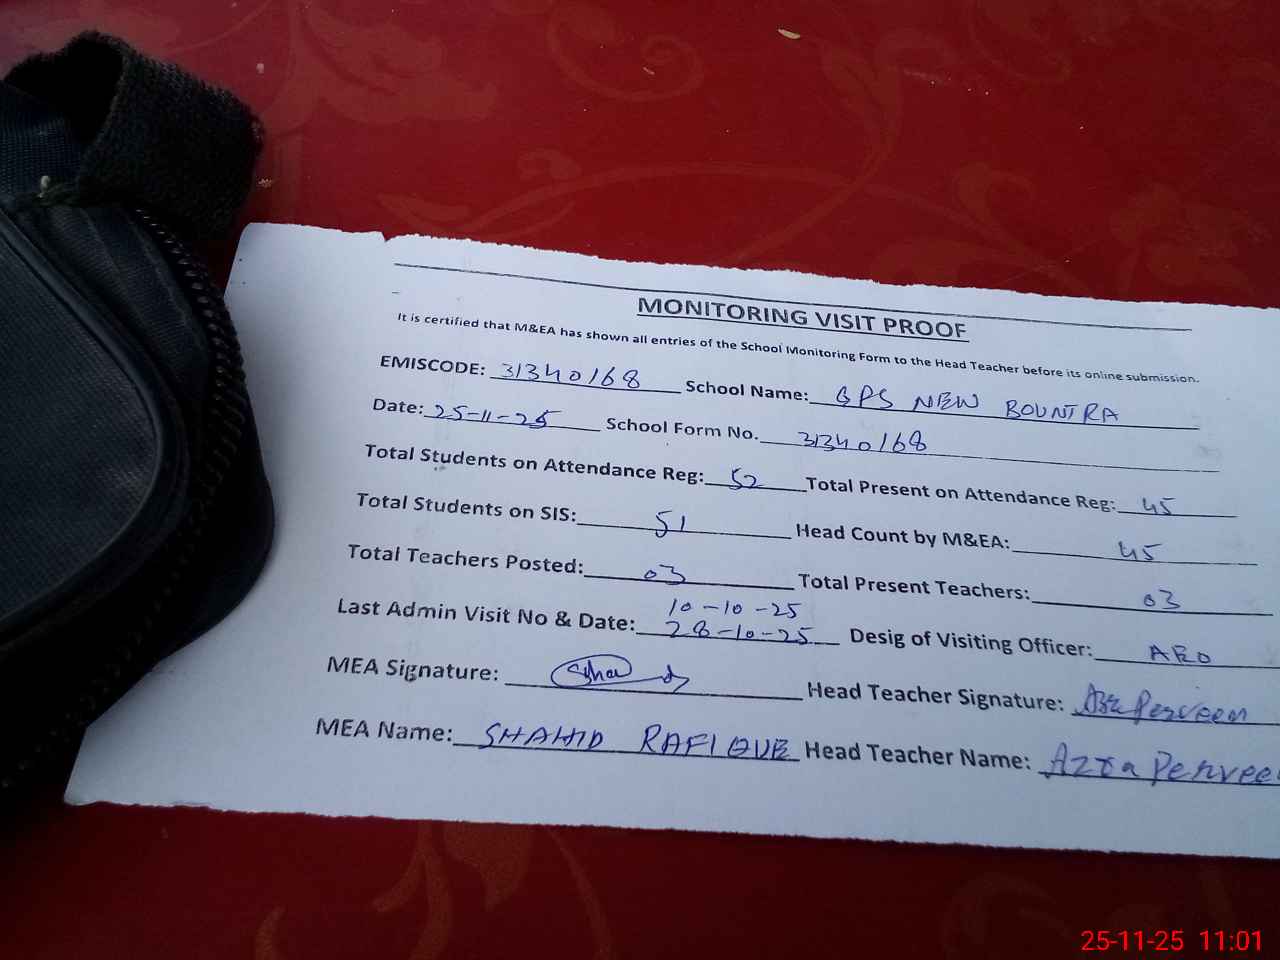 MONITORING VISIT PROOF
It is certified that M&EA has shown all entries of the School Monitoring Form to the Head Teacher before its online submission.
EMISCODE: 31340168 School Name: GPS NEW BOUNTRA
Date: 25-11-25 School Form No. 31340168
Total Students on Attendance Reg: 52 Total Present on Attendance Reg: 45
Total Students on SIS: 51 Head Count by M&EA: 45
Total Teachers Posted: 03 Total Present Teachers: 03
10-10-25
Last Admin Visit No & Date: 28-10-25 Desig of Visiting Officer: AEO
MEA Signature: Head Teacher Signature: Perveen
MEA Name: SHAHID RAFIQUE Head Teacher Name: Azra Pervee
25-11-25 11:01